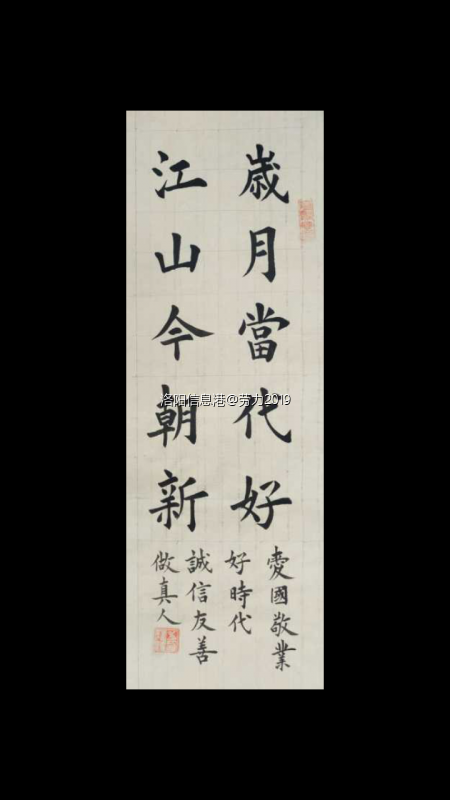 歳月當代好
江山今朝新
愛國敬業
好時代
誠信友善
做真人
洛阳信息港@劳力2019